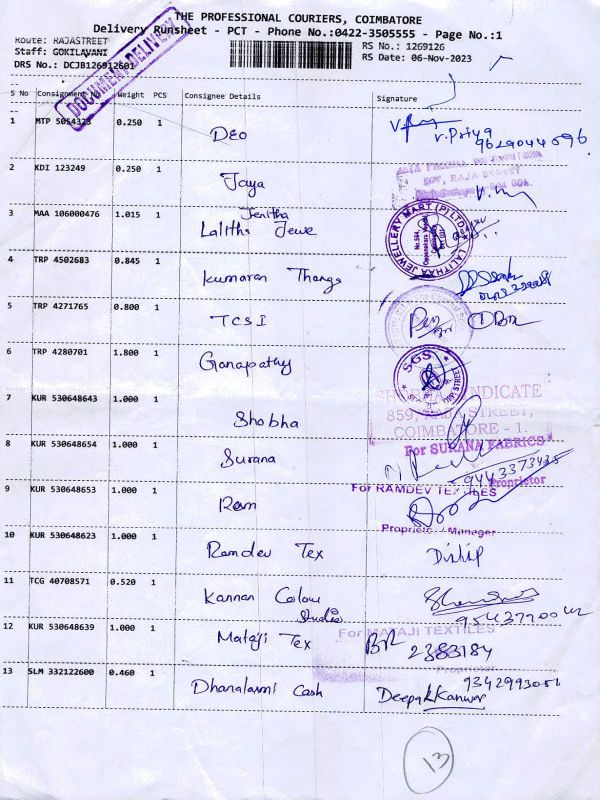 THE PROFESSIONAL COURIERS, COIMBATORE
Delivery Runsheet - PCT - Phone No.:0422-3505555 - Page No.:1
Route: RAJASTREET
RS No.: 1269126
Staff: GOKILAVANI
RS Date: 06-Nov-2023
DRS No.: DCJB126912601
DOCUMENT DELIVERY
S No Consignment No Weight PCS Consignee Details Signature
1 MTP 5054323 0.250 1 DEO V. Priya 9629044096
2 KDI 123249 0.250 1 Jaya
RAJA STREET
3 MAA 106000476 1.015 1 Jenitha
Lalitha Jewe
LALITHAA JEWELLERY MART (P) LTD.
4 TRP 4502683 0.845 1 Kumaran Thanga
5 TRP 4271765 0.800 1 TCSI
6 TRP 4280701 1.800 1 Ganapathy
SGS
7 KUR 530648643 1.000 1 Shobha
SHOBHA SYNDICATE
859, RAJA STREET,
COIMBATORE - 1.
8 KUR 530648654 1.000 1 Surana
For SURANA FABRICS
9443373435
Proprietor
9 KUR 530648653 1.000 1 Ram
For RAMDEV TEXTILES
Proprietor / Manager
10 KUR 530648623 1.000 1 Ramdev Tex Dilip
11 TCG 40708571 0.520 1 Kannan Colour
Studio
12 KUR 530648639 1.000 1 Mataji Tex
For MATAJI TEXTILES
2383184
Proprietor
13 SLM 332122600 0.460 1 Dhanalaxmi Cash
9342993051
Deepak Kanwar
13